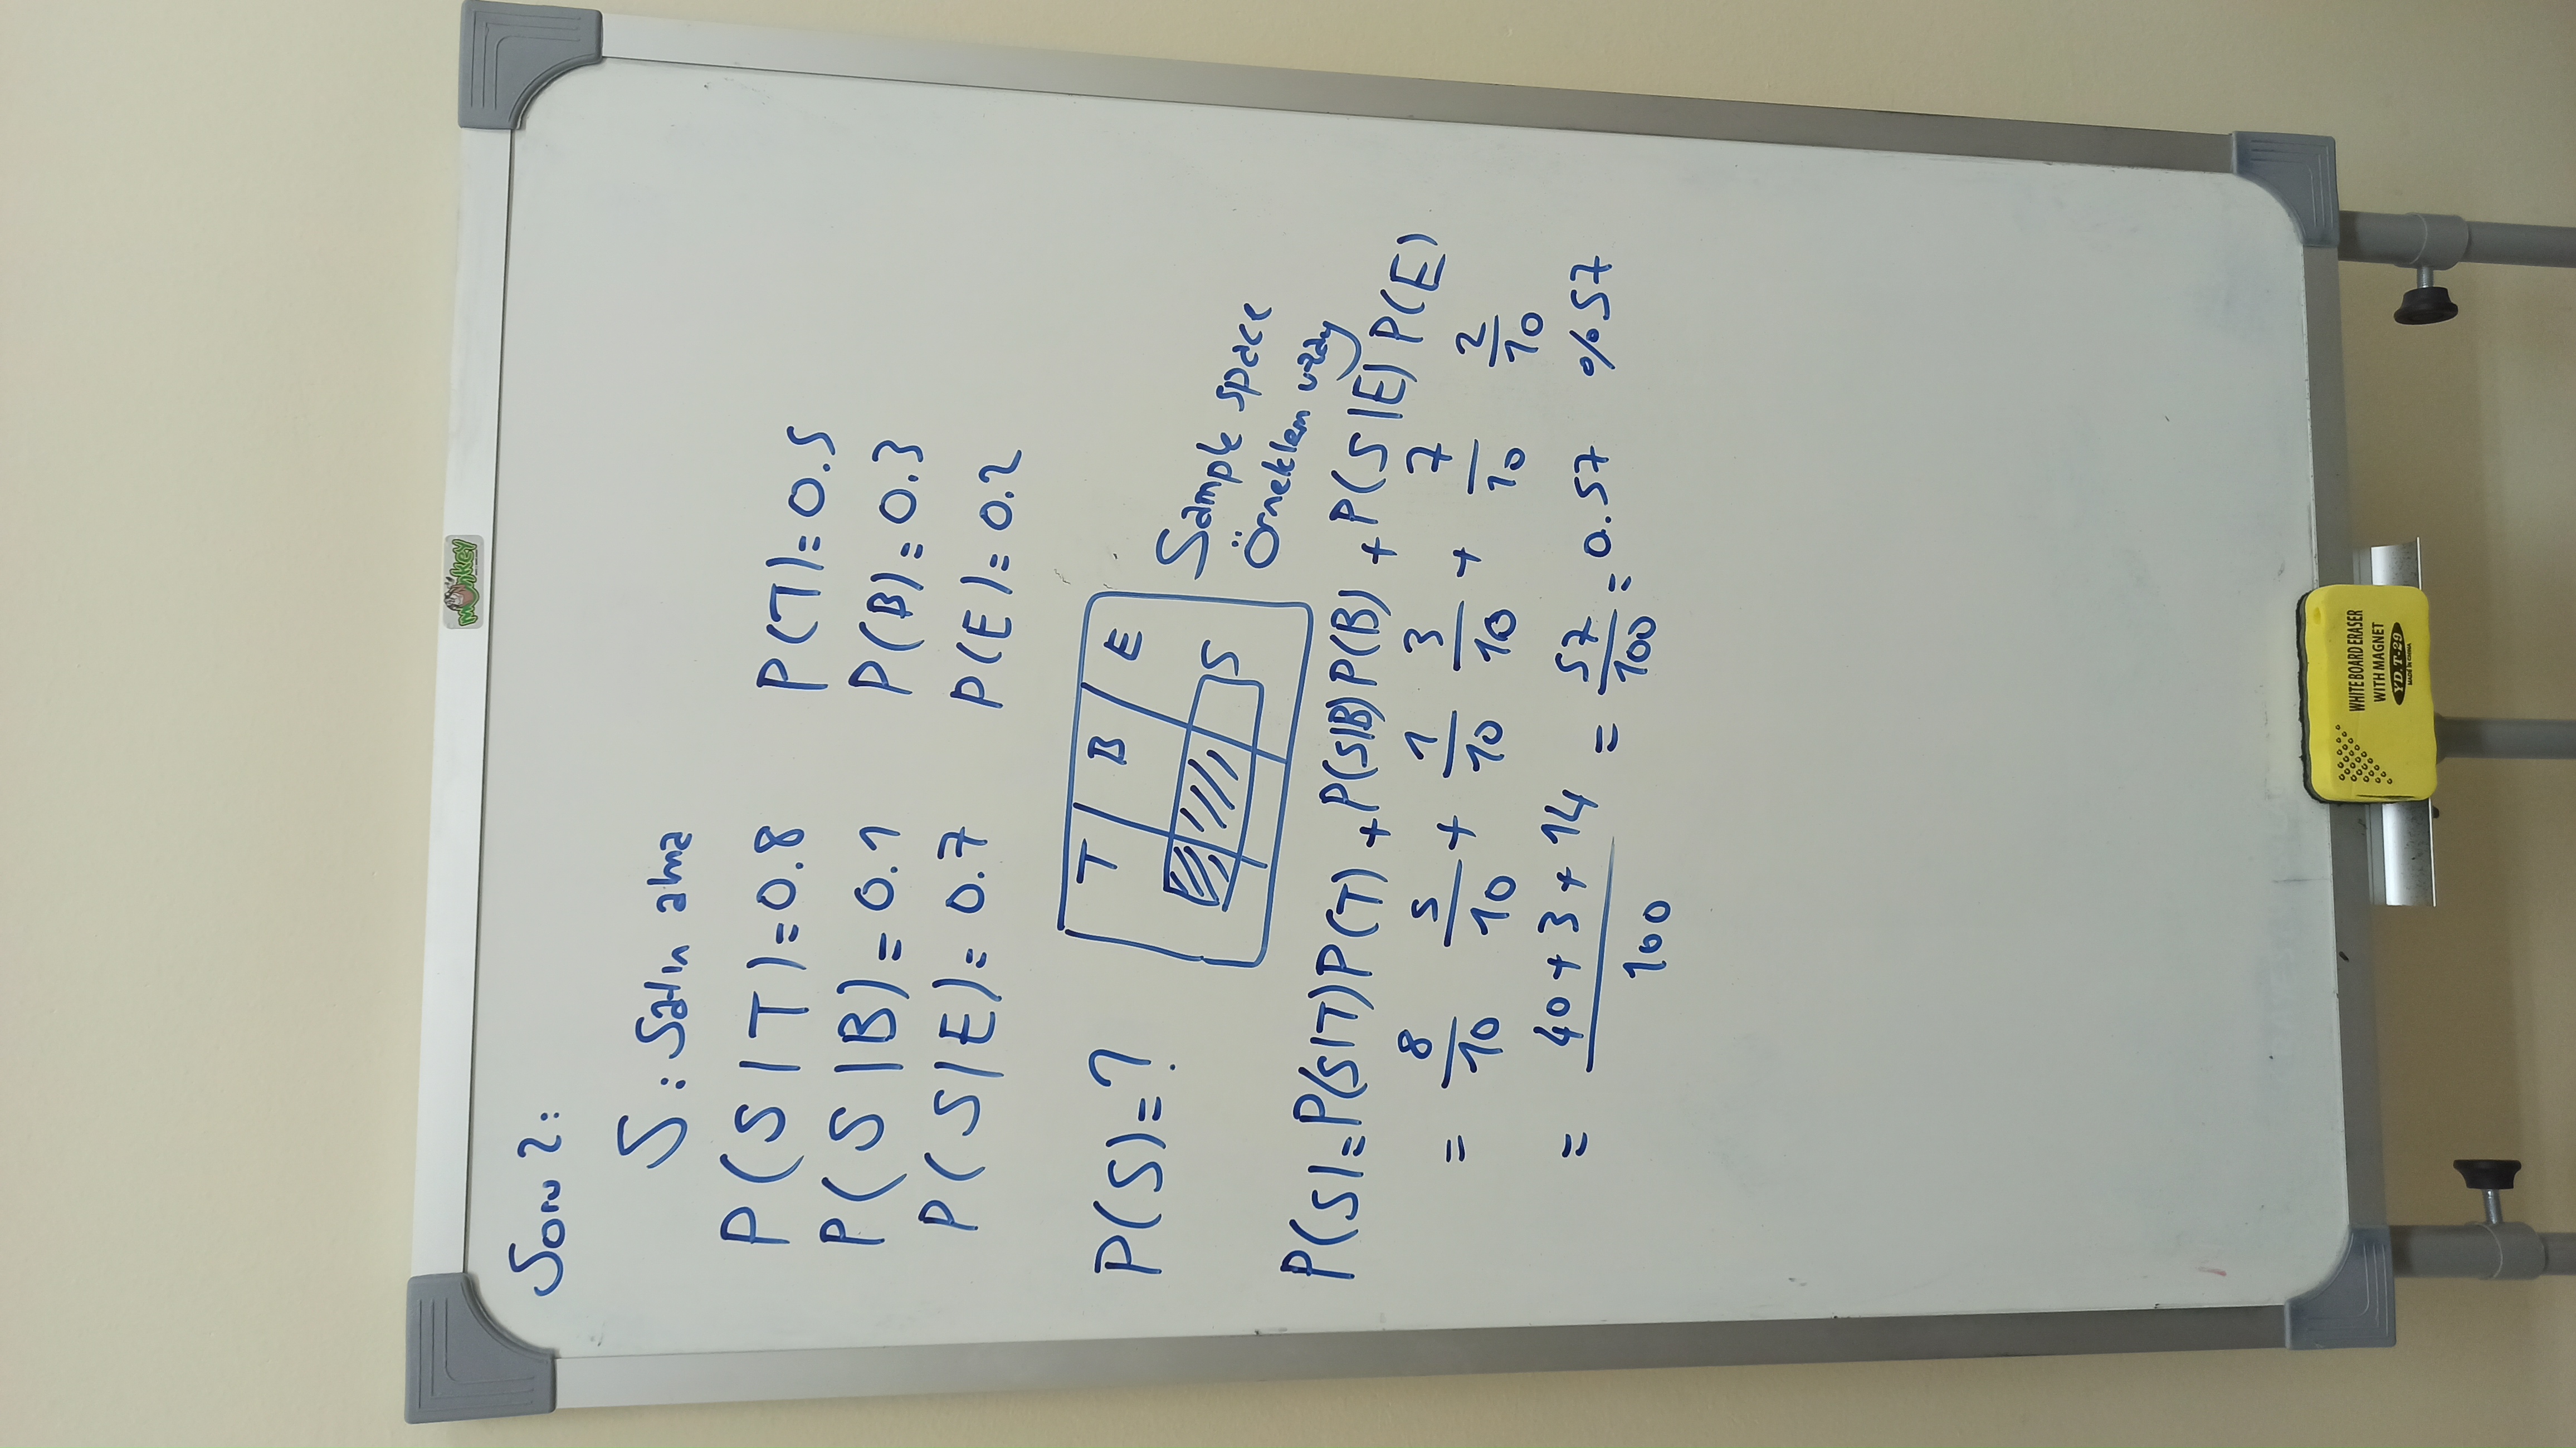 monkey
Soru 2:
S : Satın alma
P(S|T)=0.8 P(T)=0.5
P(S|B)=0.1 P(B)=0.3
P(S|E)=0.7 P(E)=0.2
P(S)=?
T B E
S
Sample space
Örneklem uzay
P(S)=P(S|T)P(T)+P(S|B)P(B)+P(S|E)P(E)
= 8/10 5/10 + 1/10 3/10 + 7/10 2/10
= 40+3+14/100 = 57/100 = 0.57 %57
WHITE BOARD ERASER
WITH MAGNET
YD.T-29
MADE IN CHINA